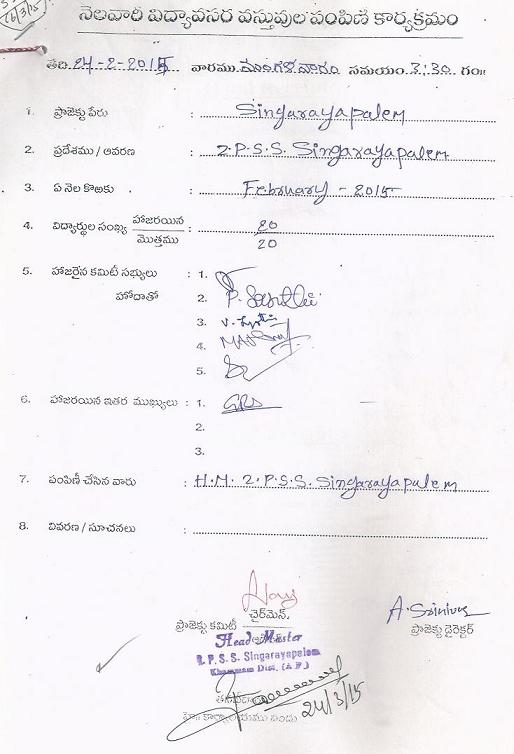 6/3/15
నెలవారి విద్యావసర వస్తువుల పంపిణీ కార్యక్రమం
తేది 24-2-2015 వారము మంగళవారం సమయం 3:30 గం॥
1. ప్రాజెక్టు పేరు : Singarayapalem
2. ప్రదేశము / ఆవరణ : 2.P.S.S. Singarayapalem
3. ఏ నెల కొఱకు : February - 2015
4. విద్యార్థుల సంఖ్య హాజరయిన : 20
మొత్తము 20
5. హాజరైన కమిటీ సభ్యులు : 1.
హోదాతో 2. P.
3. V.
4.
5.
6. హాజరయిన ఇతర ముఖ్యులు : 1.
2.
3.
7. పంపిణీ చేసిన వారు : H.M. 2.P.S.S. Singarayapalem
8. వివరణ / సూచనలు :
ప్రాజెక్టు కమిటీ చైర్‌మెన్.
A. Srinivas
ప్రాజెక్టు డైరెక్టర్
Head Master
P.S.S. Singarayapalem
Khammam Dist. (A.P.)
24/3/15